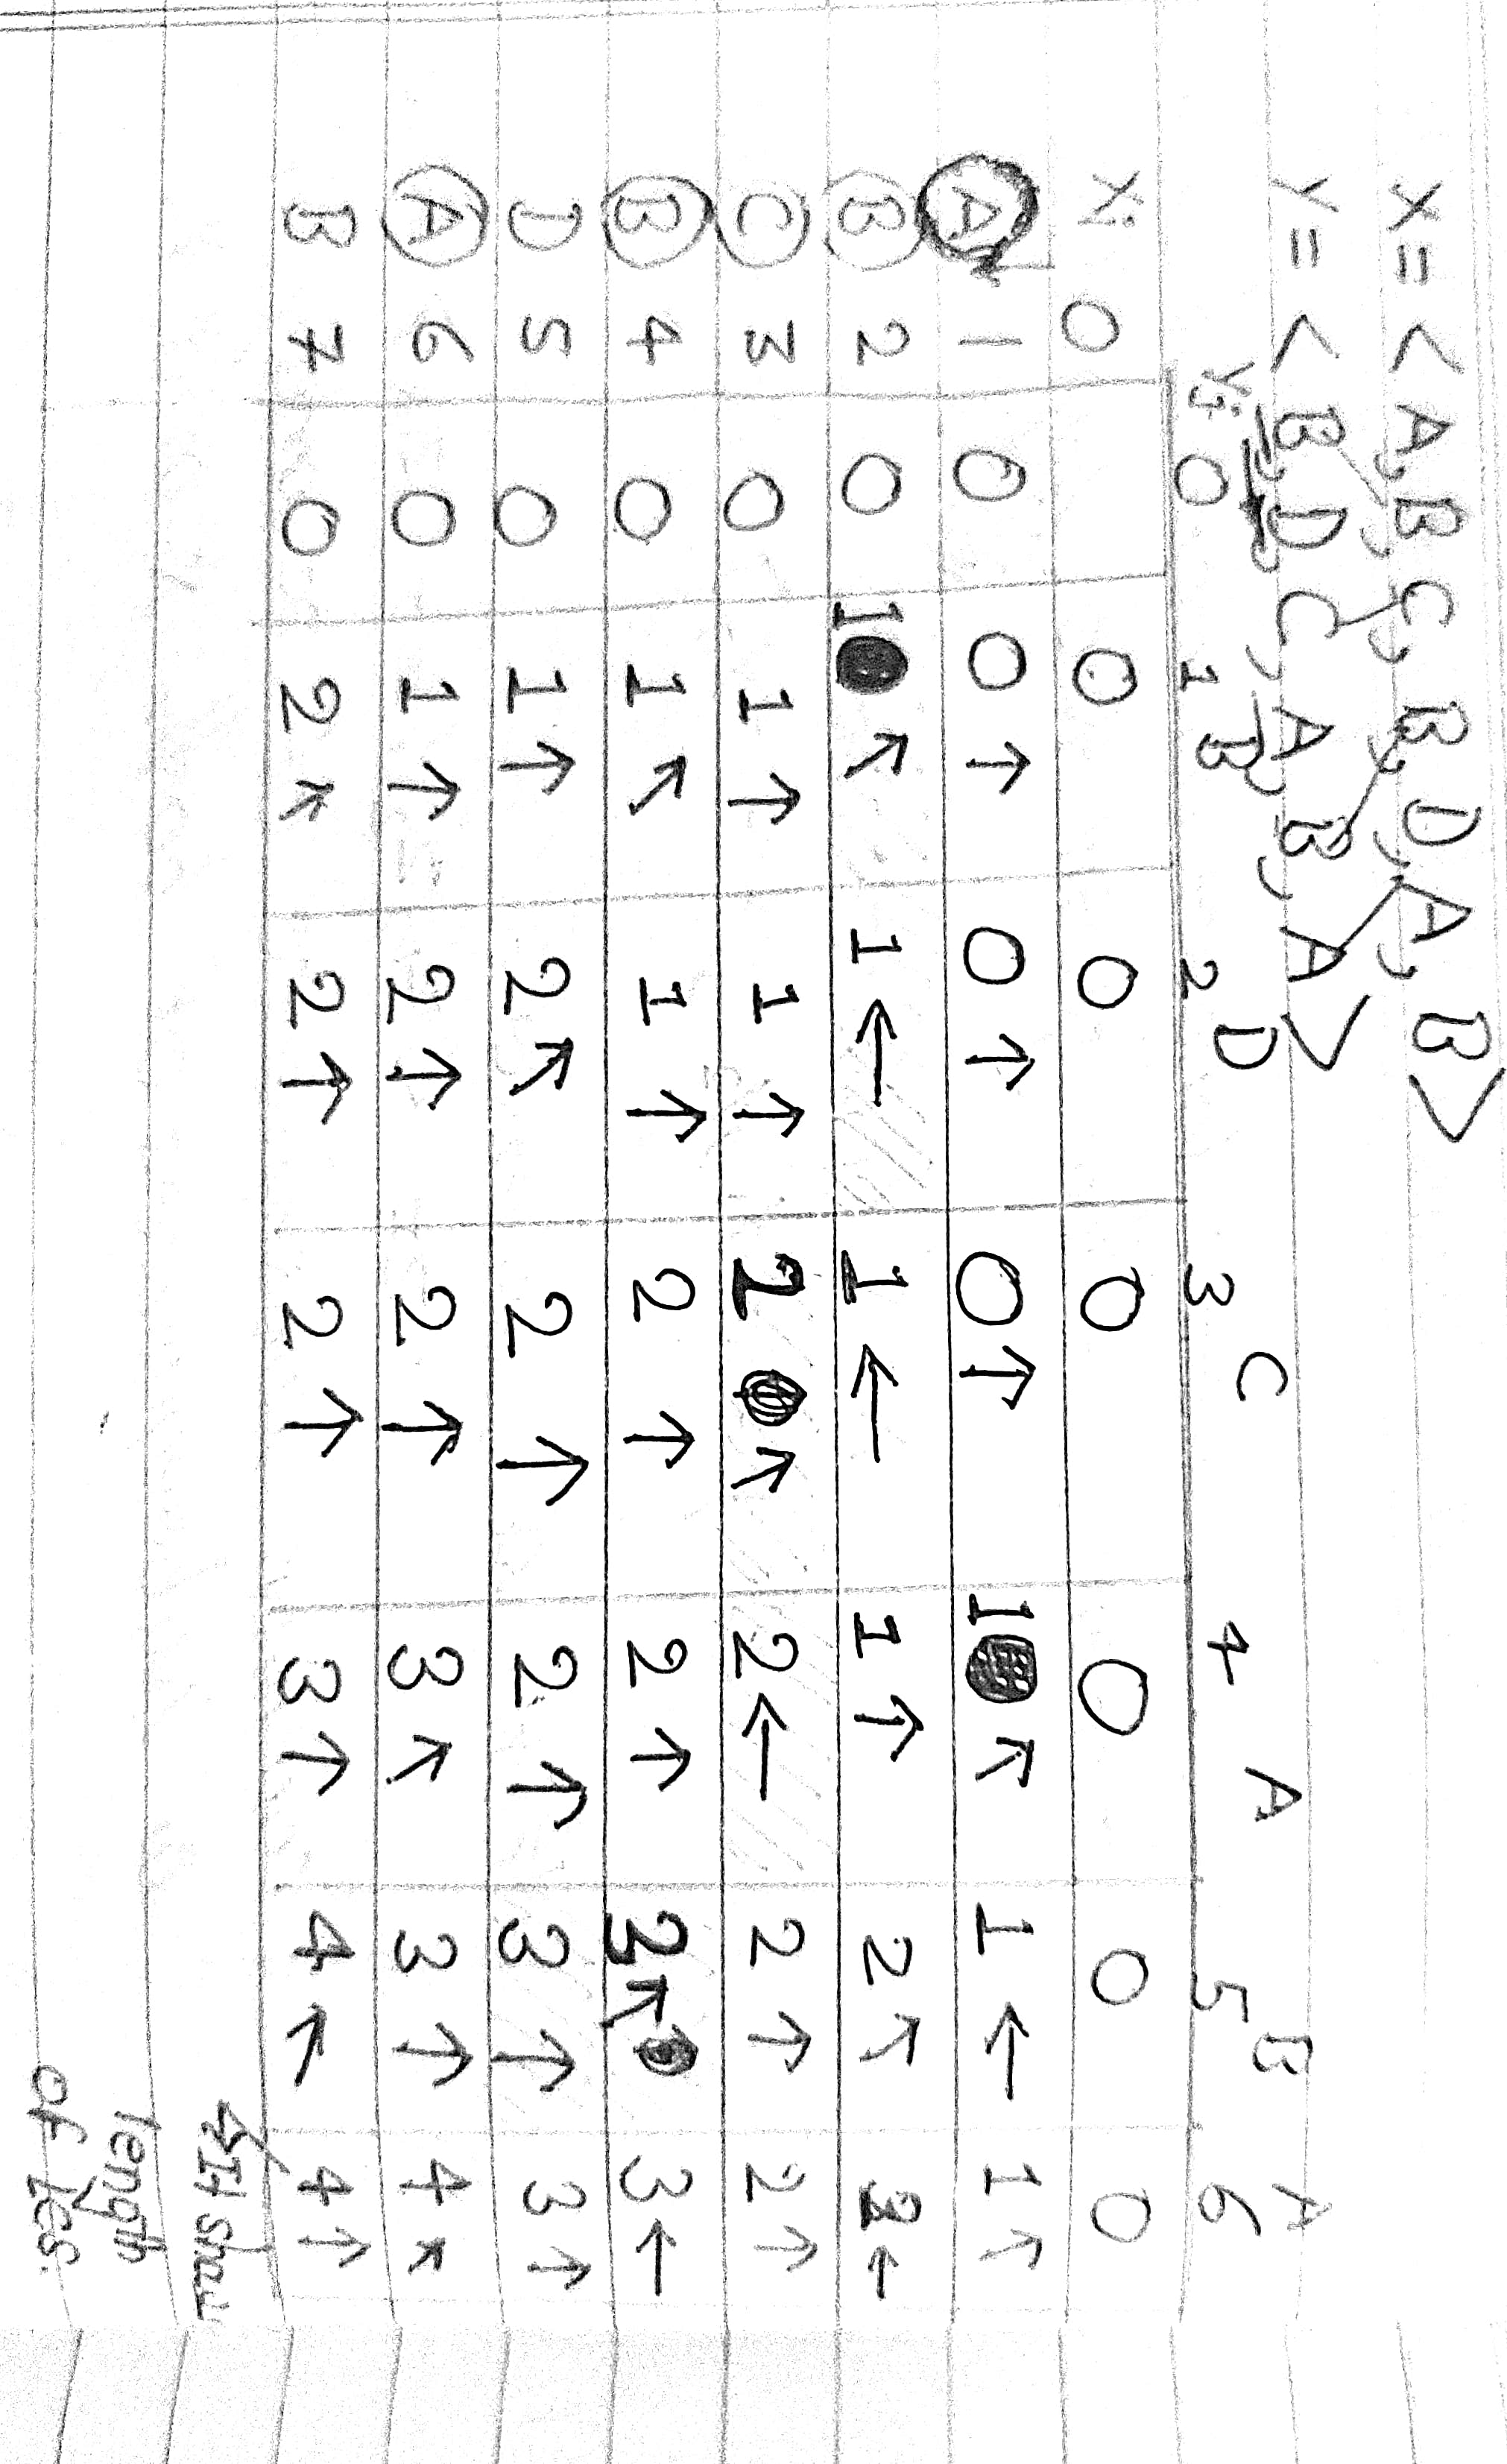 X = < A, B, C, B, D, A, B >
Y = < B, D, C, A, B, A >
Yj 0 1 B 2 D 3 C 4 A 5 B 6 A
Xi 0 0 0 0 0 0 0
A 1 0 0 ↑ 0 ↑ 0 ↑ 1 ↖ 1 ← 1 ↖
B 2 0 1 ↖ 1 ← 1 ← 1 ↑ 2 ↖ 2 ←
C 3 0 1 ↑ 1 ↑ 2 ↖ 2 ← 2 ↑ 2 ↑
B 4 0 1 ↖ 1 ↑ 2 ↑ 2 ↑ 3 ↖ 3 ←
D 5 0 1 ↑ 2 ↖ 2 ↑ 2 ↑ 3 ↑ 3 ↑
A 6 0 1 ↑ 2 ↑ 2 ↑ 3 ↖ 3 ↑ 4 ↖
B 7 0 2 ↖ 2 ↑ 2 ↑ 3 ↑ 4 ↖ 4 ↑
It show
length
of LCS.